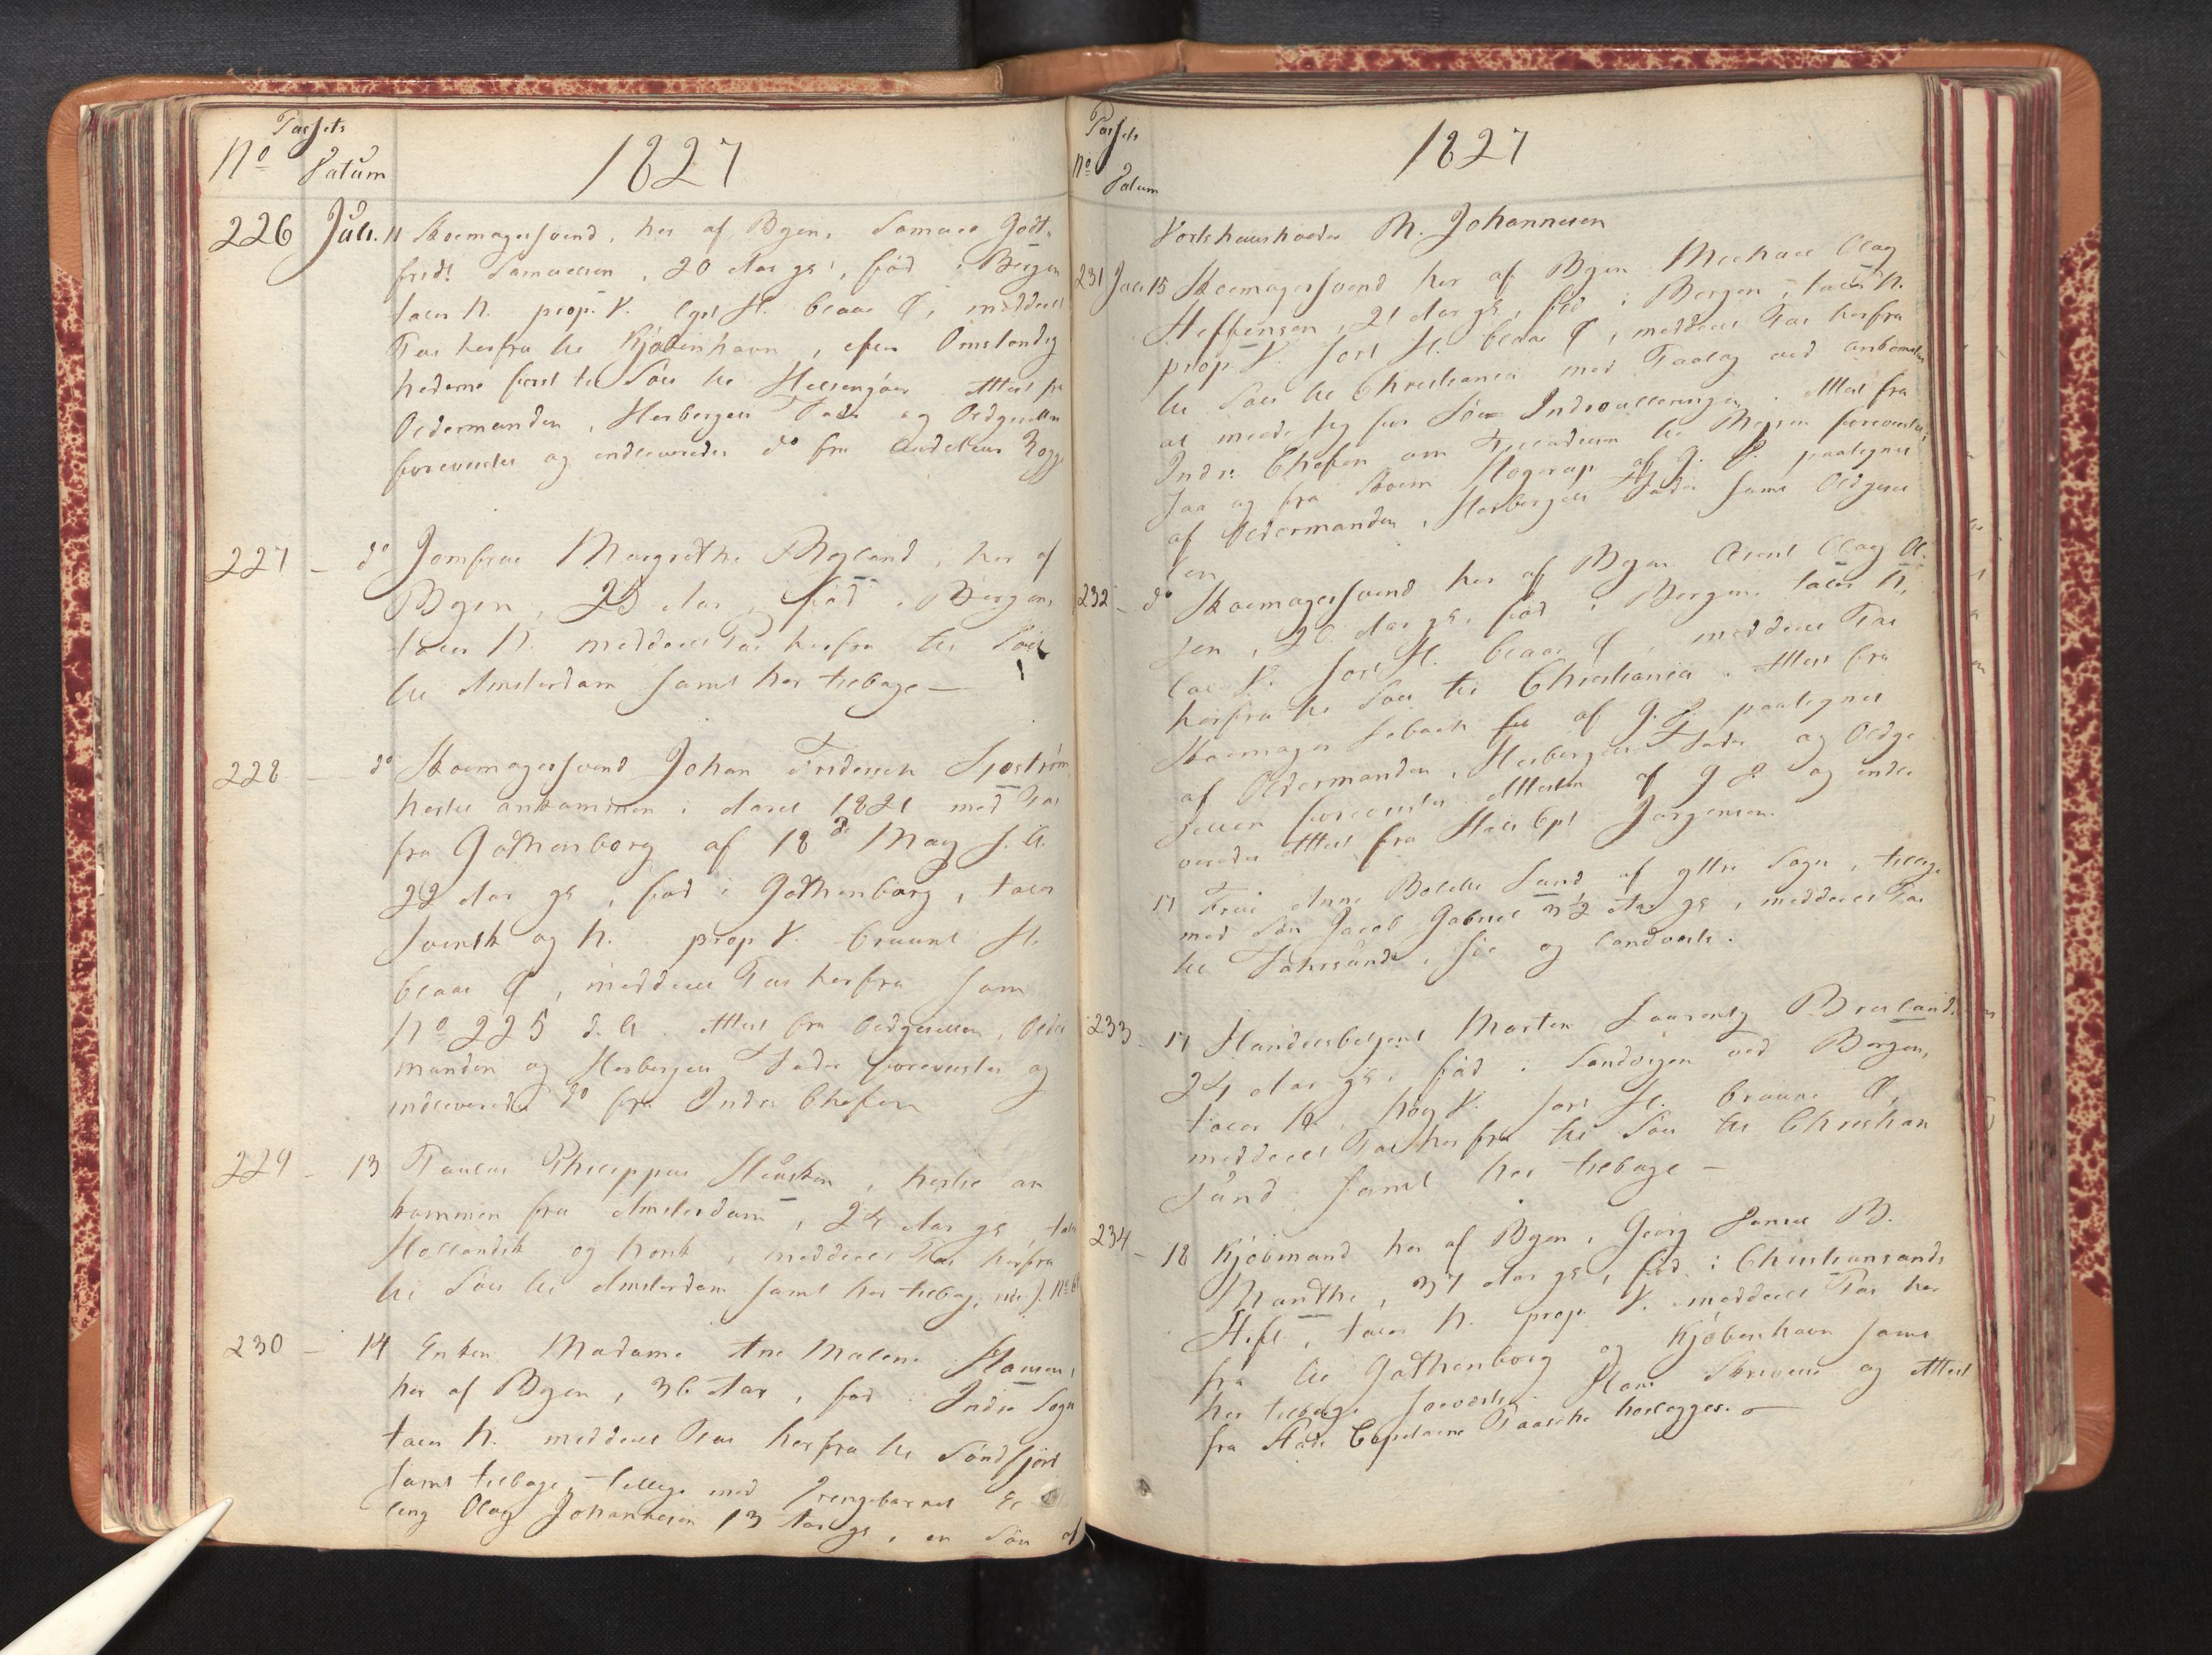 Passets
No Datum
1827
226 Juli 11 Skoemagersvend, her af Byen, Samuel Godt-
frid Samuelsen, 20 Aar gl, föd i Bergen
taler N. prop. V. lyst H. blaae Ø, meddeelt
Pas herfra til Kjöbenhavn, efter Omstændig
hederne først til Söes til Helsengöer Attest fra
Oldermanden, Herbergets Fader og Oldgesellen
foreviister og indleveredes do fra Auditeur
227 – do Jomfrue Margrethe Myland, her af
Byen, 25 Aar, föd i Bergen,
taler N. meddeelt Pas herfra til Söes
til Amsterdam samt her tilbage –
228 – do Skoemagersvend Johan Friderich Sjöström
hertil ankommen i Aaret 1821 med Pas
fra Gothenborg af 18de May s. A.
22 Aar gl, föd i Gothenborg, taler
svensk og N. prop V. bruunt H.
blaae Ø, meddeelt Pas herfra som
No 225 d. A. Attest fra Oldgesellen, Older
manden og Herbergets Fader foreviistes og
indleveredes do fra Indr. Chefen
229 – 13 Paulus Philippus Heusken, hertil an
kommen fra Amsterdam, 24 Aar gl, taler
Hollandsk og Norsk, meddeelt Pas herfra
til Söes til Amsterdam samt her tilbage,
230 – 14 Enken Madame Ane Malene Hansen,
her af Byen, 36 Aar, föd i Indre Sogn
taler N. meddeelt Pas herfra til Söndfjord
samt tilbage, tillige med Drengebarnet
Olay Johannesen 13 Aar gl, en Sön af
Passets
No Datum
1827
M. Johannesen
231 Juli 15 Skoemagersvend her af Byen Michael Olay
Steffensen, 21 Aar gl, föd i Bergen, taler N.
prop. V. sort H. blaae Ø, meddeelt Pas herfra
til Söes til Christiania med Paalæg ved ankomsten
at melde sig for Söe Indroulleringen. Attest fra
Indr. Chefen om Tilladelsen til Reysen foreviistes,
saa og fra Skoem af G. D. paategnet
af Oldermanden, Herbergets Fader samt Oldgesel
len
232 – do Skoemagersvend her af Byen Arent Olay A.
sen, 20 Aar gl, föd i Bergen, taler N.
lav V. sort H. blaae Ø, meddeelt Pas
herfra til Söes til Christiania. Attest fra
Skoemager Sebach af G. D. paategnet
af Oldermanden, Herbergets Fader og Oldge
sellen foreviistes Attesten af G D og indle
veredes Attest fra Stads Cpt. Jörgensen.
17 Frue Anne Bolette Sund af yttre Sogn, tillige
med Sön Jacob Gabriel 3½ Aar gl, meddeelt Pas
til Fahrsund, Söe og landværts.
233 – 17 Handelsbetjent Morten Laurentz Breiland,
24 Aar gl, föd i Sandvigen ved Bergen,
taler N, höy V. sort H. bruune Ø,
meddeelt Pas herfra til Söes til Christian
sand samt her tilbage –
234 – 18 Kjöbmand her af Byen, Georg Daniel B.
Mandthe, 37 Aar gl, föd i Christiansands
Stift, taler N. prop. V. meddeelt Pas her
fra til Gothenborg og Kjöbenhavn samt
her tilbage söeværts. Hans Skrivelse og Attest
fra Stads Capitaine Paasche henlægges. –